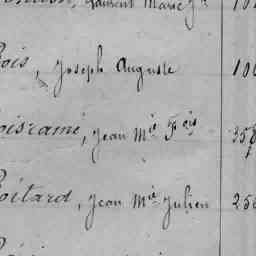 Laurent Marie
ois, Joseph Auguste 10
oisramé, Jean Mie Fois 358
oitard, Jean Mie Julien 25